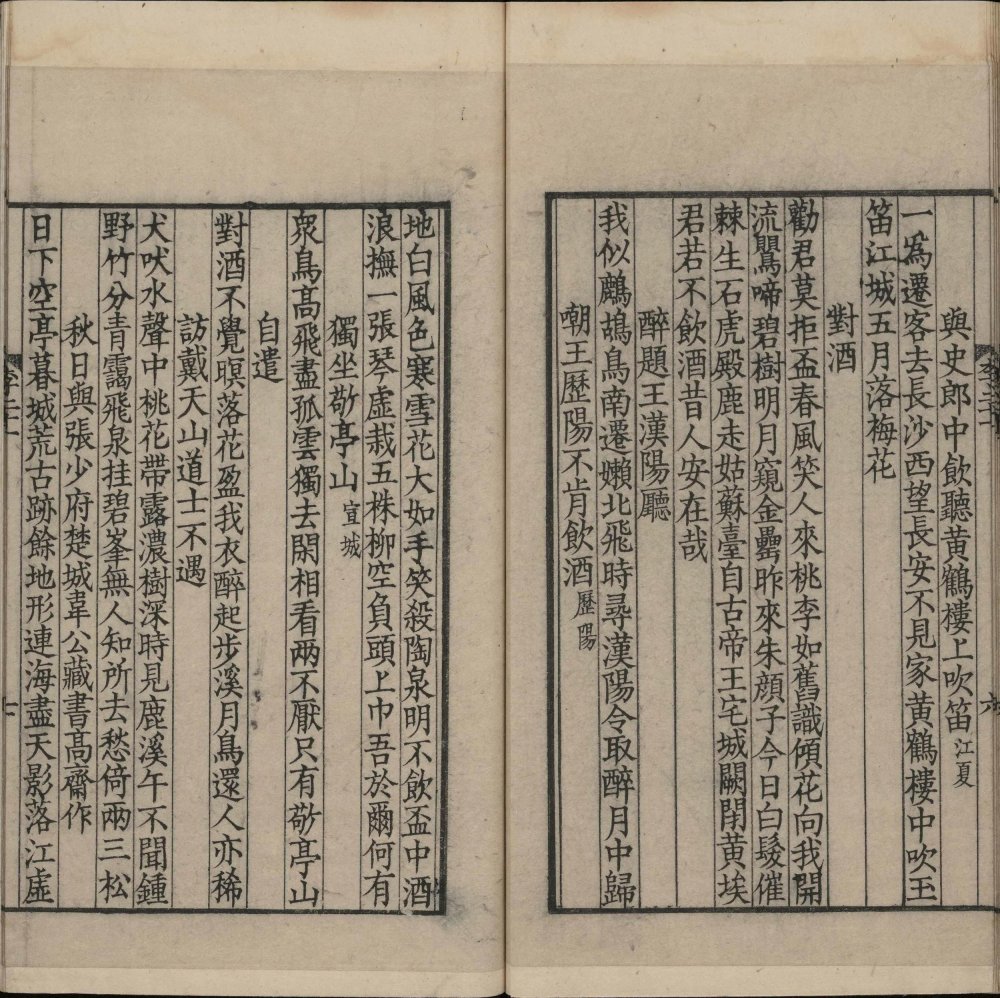 與史郎中飲聽黃鶴樓上吹笛 江夏
一爲遷客去長沙西望長安不見家黃鶴樓中吹玉
笛江城五月落梅花
對酒
勸君莫拒盃春風笑人來桃李如舊識傾花向我開
流鸎啼碧樹明月窺金罍昨來朱顏子今日白髮催
棘生石虎殿鹿走姑蘇臺自古帝王宅城闕閉黃埃
君若不飲酒昔人安在哉
醉題王漢陽廳
我似鷓鴣鳥南遷嬾北飛時尋漢陽令取醉月中歸
嘲王歷陽不肯飲酒 歷陽
地白風色寒雪花大如手笑殺陶泉明不飲盃中酒
浪撫一張琴虛栽五株柳空負頭上巾吾於爾何有
獨坐敬亭山 宣城
衆鳥高飛盡孤雲獨去閑相看兩不厭只有敬亭山
自遣
對酒不覺暝落花盈我衣醉起步溪月鳥還人亦稀
訪戴天山道士不遇
犬吠水聲中桃花帶露濃樹深時見鹿溪午不聞鍾
野竹分青靄飛泉挂碧峯無人知所去愁倚兩三松
秋日與張少府楚城韋公藏書高齋作
日下空亭暮城荒古跡餘地形連海盡天影落江虛